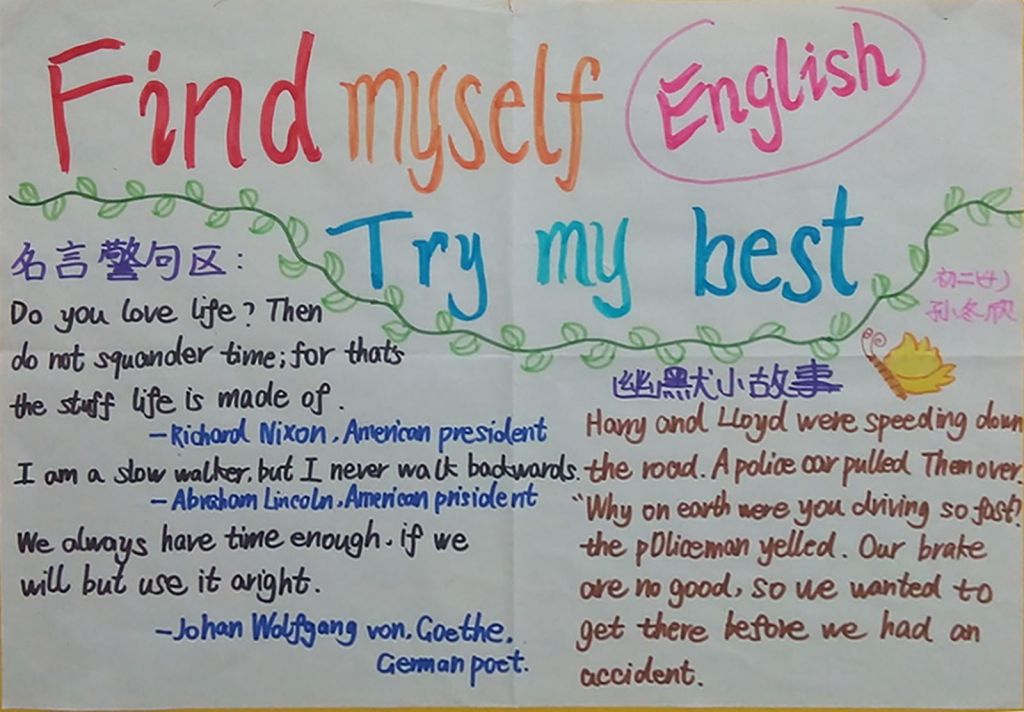 Find myself English
Try my best
名言警句区:
Do you love life? Then
do not squander time; for thats
the stuff life is made of.
—Richard Nixon, American president
I am a slow walker, but I never walk backwards.
—Abraham Lincoln, American prisident
We always have time enough, if we
will but use it aright.
—Johan Wolfgang von, Goethe,
German poet.
初二(4)
孙冬欣
幽默小故事
Harry and Lloyd were speeding down
the road. A police car pulled Them over.
“Why on earth were you driving so fast?
the pOliceman yelled. Our brake
are no good, so we wanted to
get there before we had an
accident.